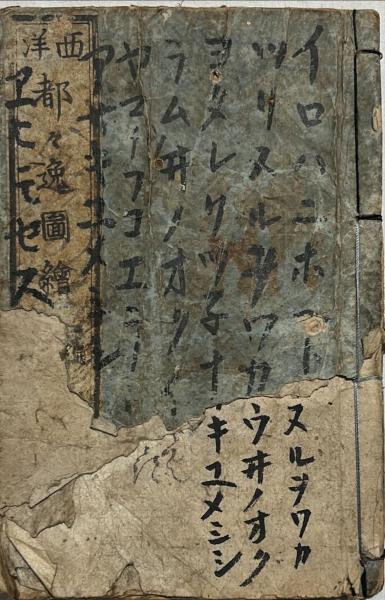 イロハニホヘト
ツリヌルヲワカ
ヨタレソツ子ナ
ラム井ノオク
ヤマケフコエ
アサキユメミシ
ヱヒモセス
西洋
都々逸圖繪
ヌルヲワカ
ウ井ノオク
キユメミシ